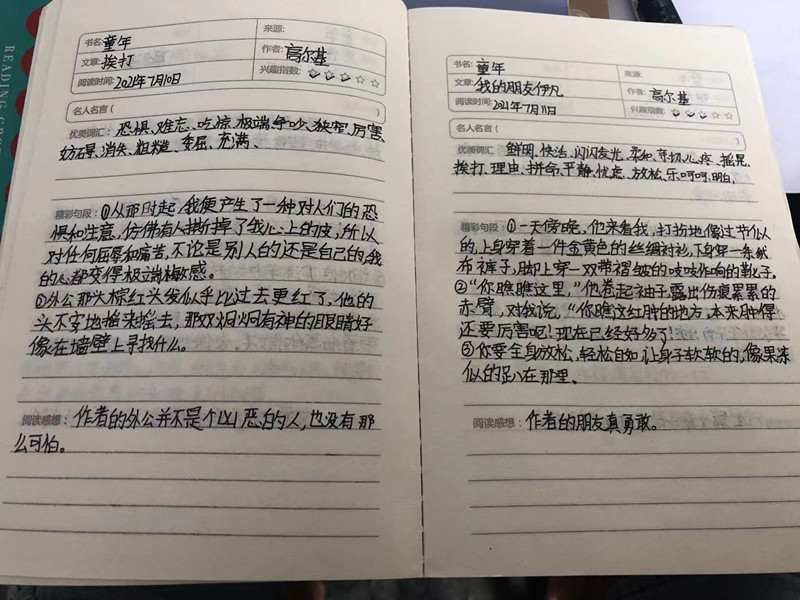 READING GROW
书名: 童年
来源:
文章: 挨打
作者: 高尔基
阅读时间: 2021年7月10日
兴趣指数:
名人名言(
)
优美词汇: 恐惧、难忘、吃凉、极端、争吵、狭窄、厉害、
妨碍、消失、粗糙、委屈、充满、
精彩句段: ①从那时起,我便产生了一种对人们的恐
惧和注意,仿佛有人撕掉了我心上的皮,所以
对任何屈辱和痛苦,不论是别人的还是自己的,我
的心都变得极端敏感。
②外公那头棕红头发似乎比过去更红了,他的
头不安地摇来晃去,那双炯炯有神的眼睛好
像在墙壁上寻找什么。
阅读感想: 作者的外公并不是个凶恶的人,也没有那
么可怕。
书名: 童年
来源:
文章: 我的朋友伊凡
作者: 高尔基
阅读时间: 2021年7月11日
兴趣指数:
名人名言(
)
优美词汇: 鲜明、快活、闪闪发光、柔和、亲切、心疼、摇晃、
挨打、理由、拼命、平静、忧虑、放松、乐呵呵、明白、
精彩句段: ①一天傍晚,他来看我,打扮地像过节似
的,上身穿着一件金黄色的丝绸衬衫,下身穿一条绒
布裤子,脚上穿一双带褶皱的吱吱作响的靴子。
②“你瞧瞧这里,”他卷起袖子,露出伤痕累累的
赤臂,对我说,“你瞧这红肿的地方,本来肿得
还要厉害呢!现在已经好多了!
③你要全身放松,轻松自如,让身子软软的,像果冻
似的趴在那里。
阅读感想: 作者的朋友真勇敢。